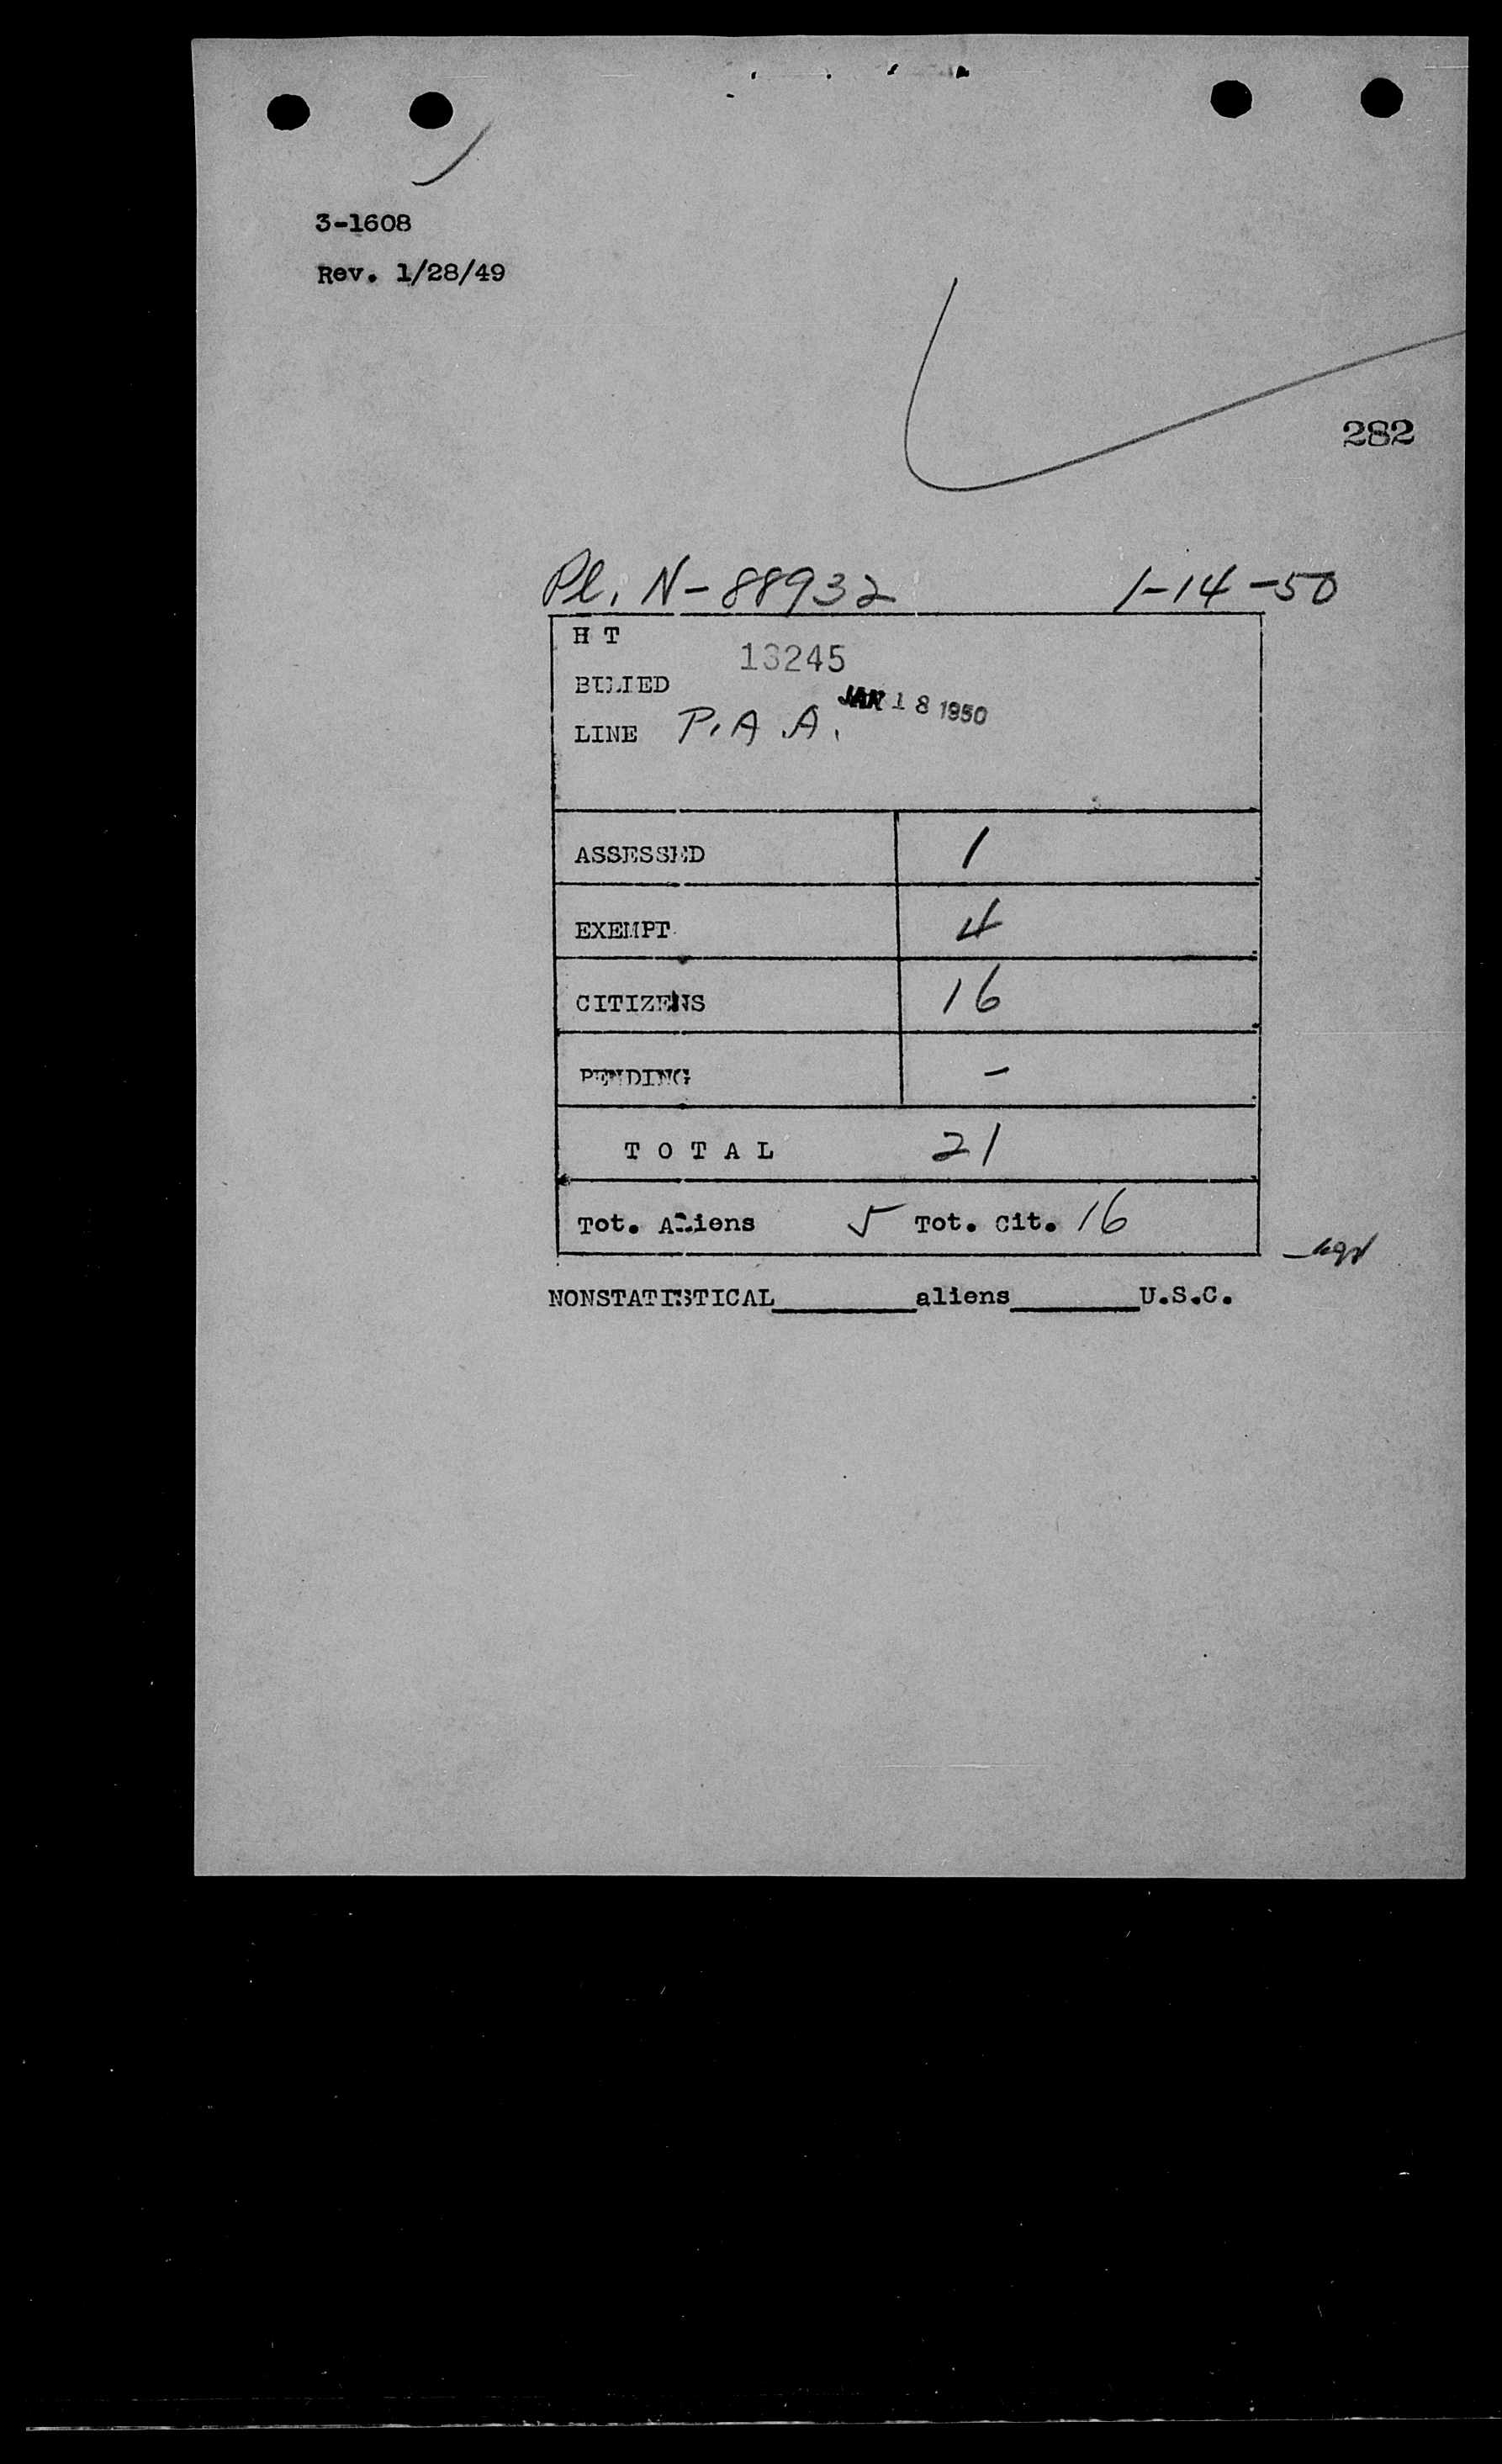 3-1608
Rev. 1/28/49
282
Pl. N-88932 1-14-50
H T
13245
BILLED
JAN 18 1950
LINE P.A.A.
ASSESSED 1
EXEMPT 4
CITIZENS 16
PENDING -
T O T A L 21
Tot. Aliens 5 Tot. Cit. 16
NONSTATISTICAL________aliens________U.S.C.